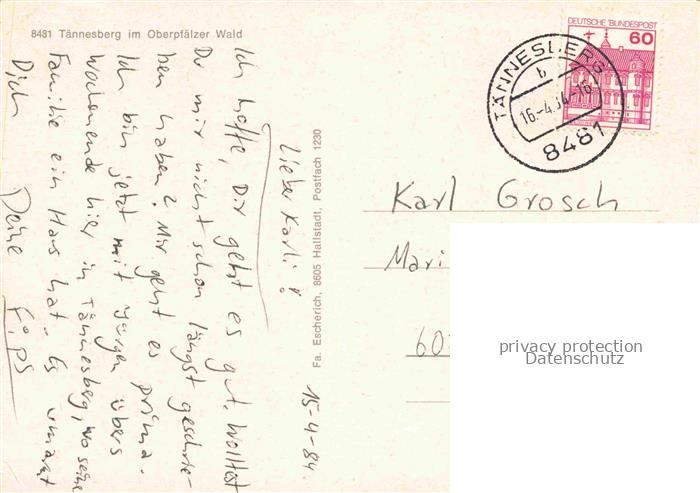 8481 Tännesberg im Oberpfälzer Wald
15-4-84
Lieber Karli!
Ich hoffe, Dir geht es gut. Wolltest
Du mir nicht schon längst geschrie-
ben haben? Mir geht es prima.
Ich bin jetzt mit Jürgen übers
Wochenende hier in Tännesberg, wo seine
Familie ein Haus hat. Es umarmt
Dich Deine Fips
Fa. Escherich, 8605 Hallstadt, Postfach 1230
DEUTSCHE BUNDESPOST
60
TÄNNESBERG
b
16.-4.84-16
8481
Karl Grosch
Mari
60
privacy protection
Datenschutz